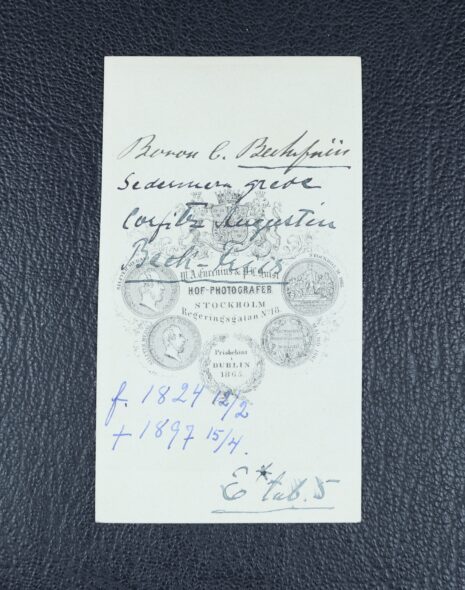 Baron C. Beckfriis
Sedermera greve
Corfitz Augustin
Beck-Friis
W. A. Eurenius & P. L. Quist
HOF-PHOTOGRAFER
STOCKHOLM
Regeringsgatan No 18.
Prisbelönt
i
DUBLIN
1865
f. 1824 12/2
+ 1897 15/4.
E* tab. 5